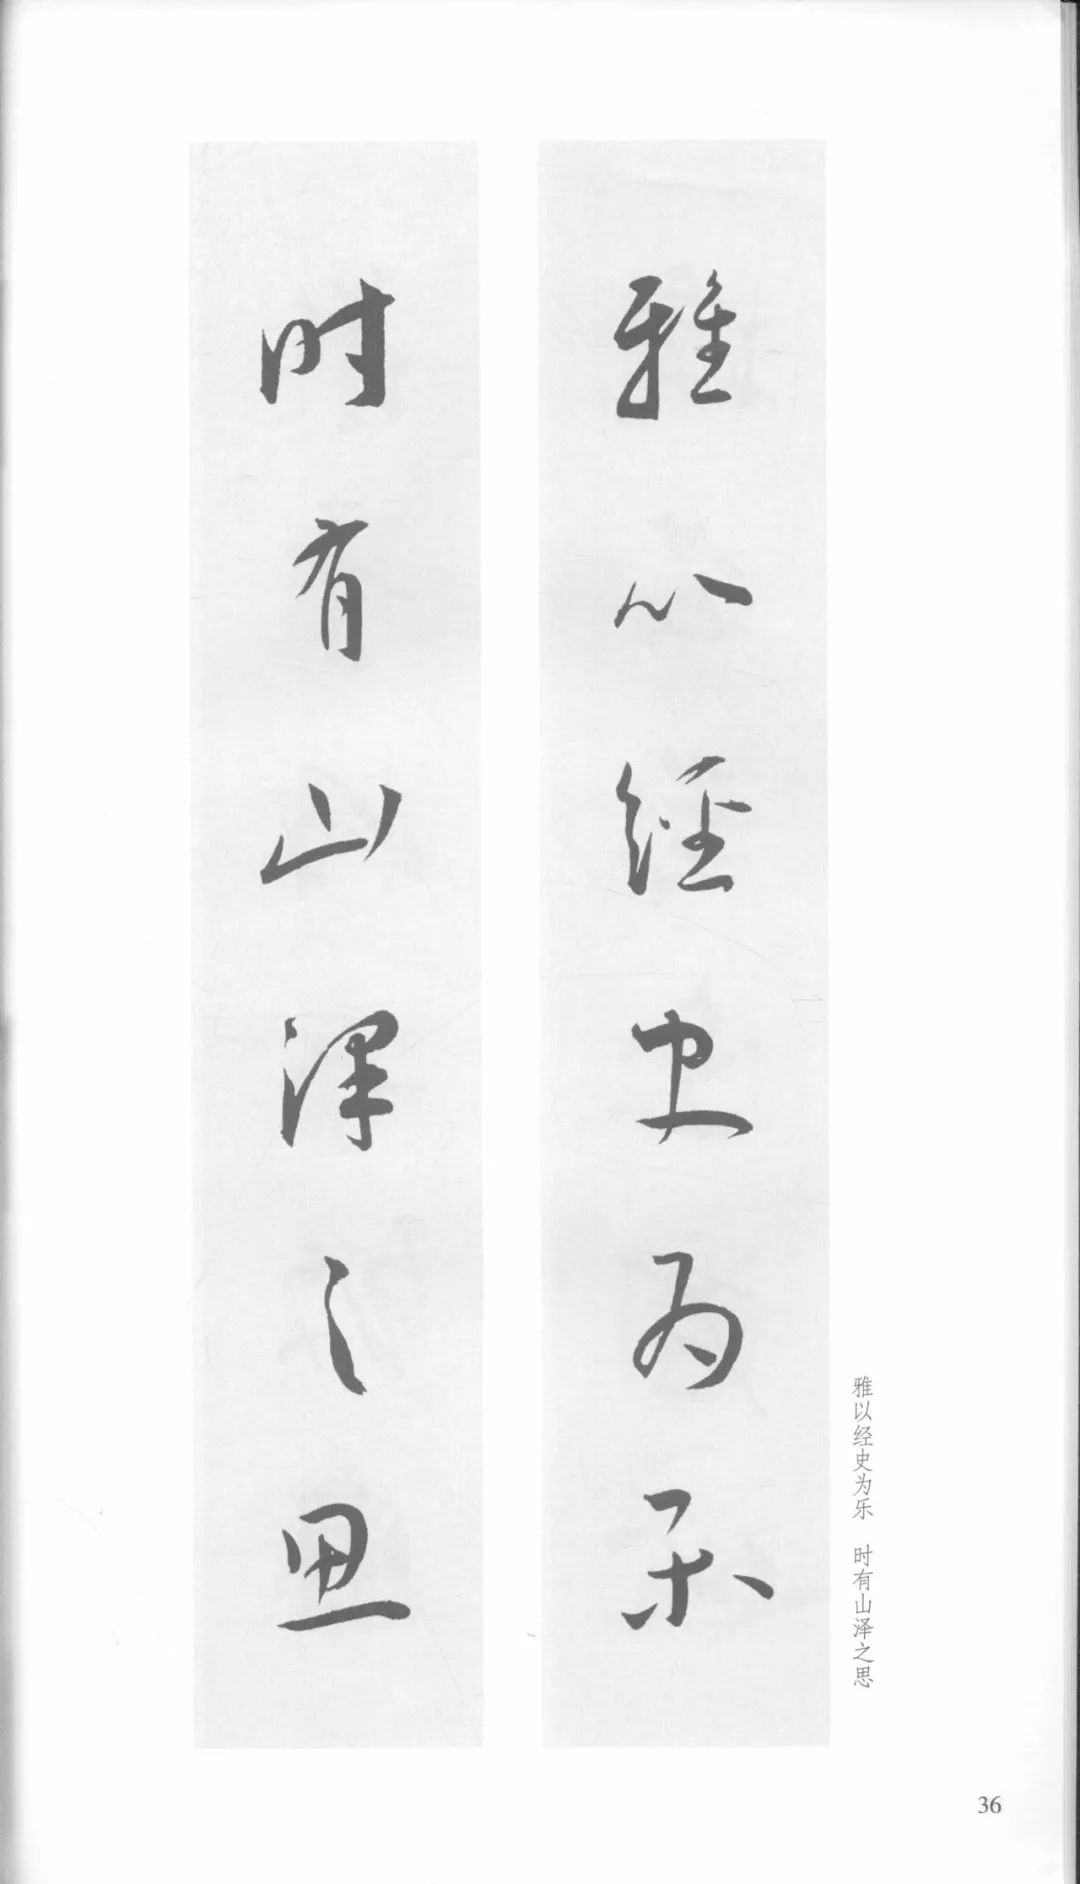 雅以經史为乐
时有山泽之思
雅以经史为乐 时有山泽之思
36